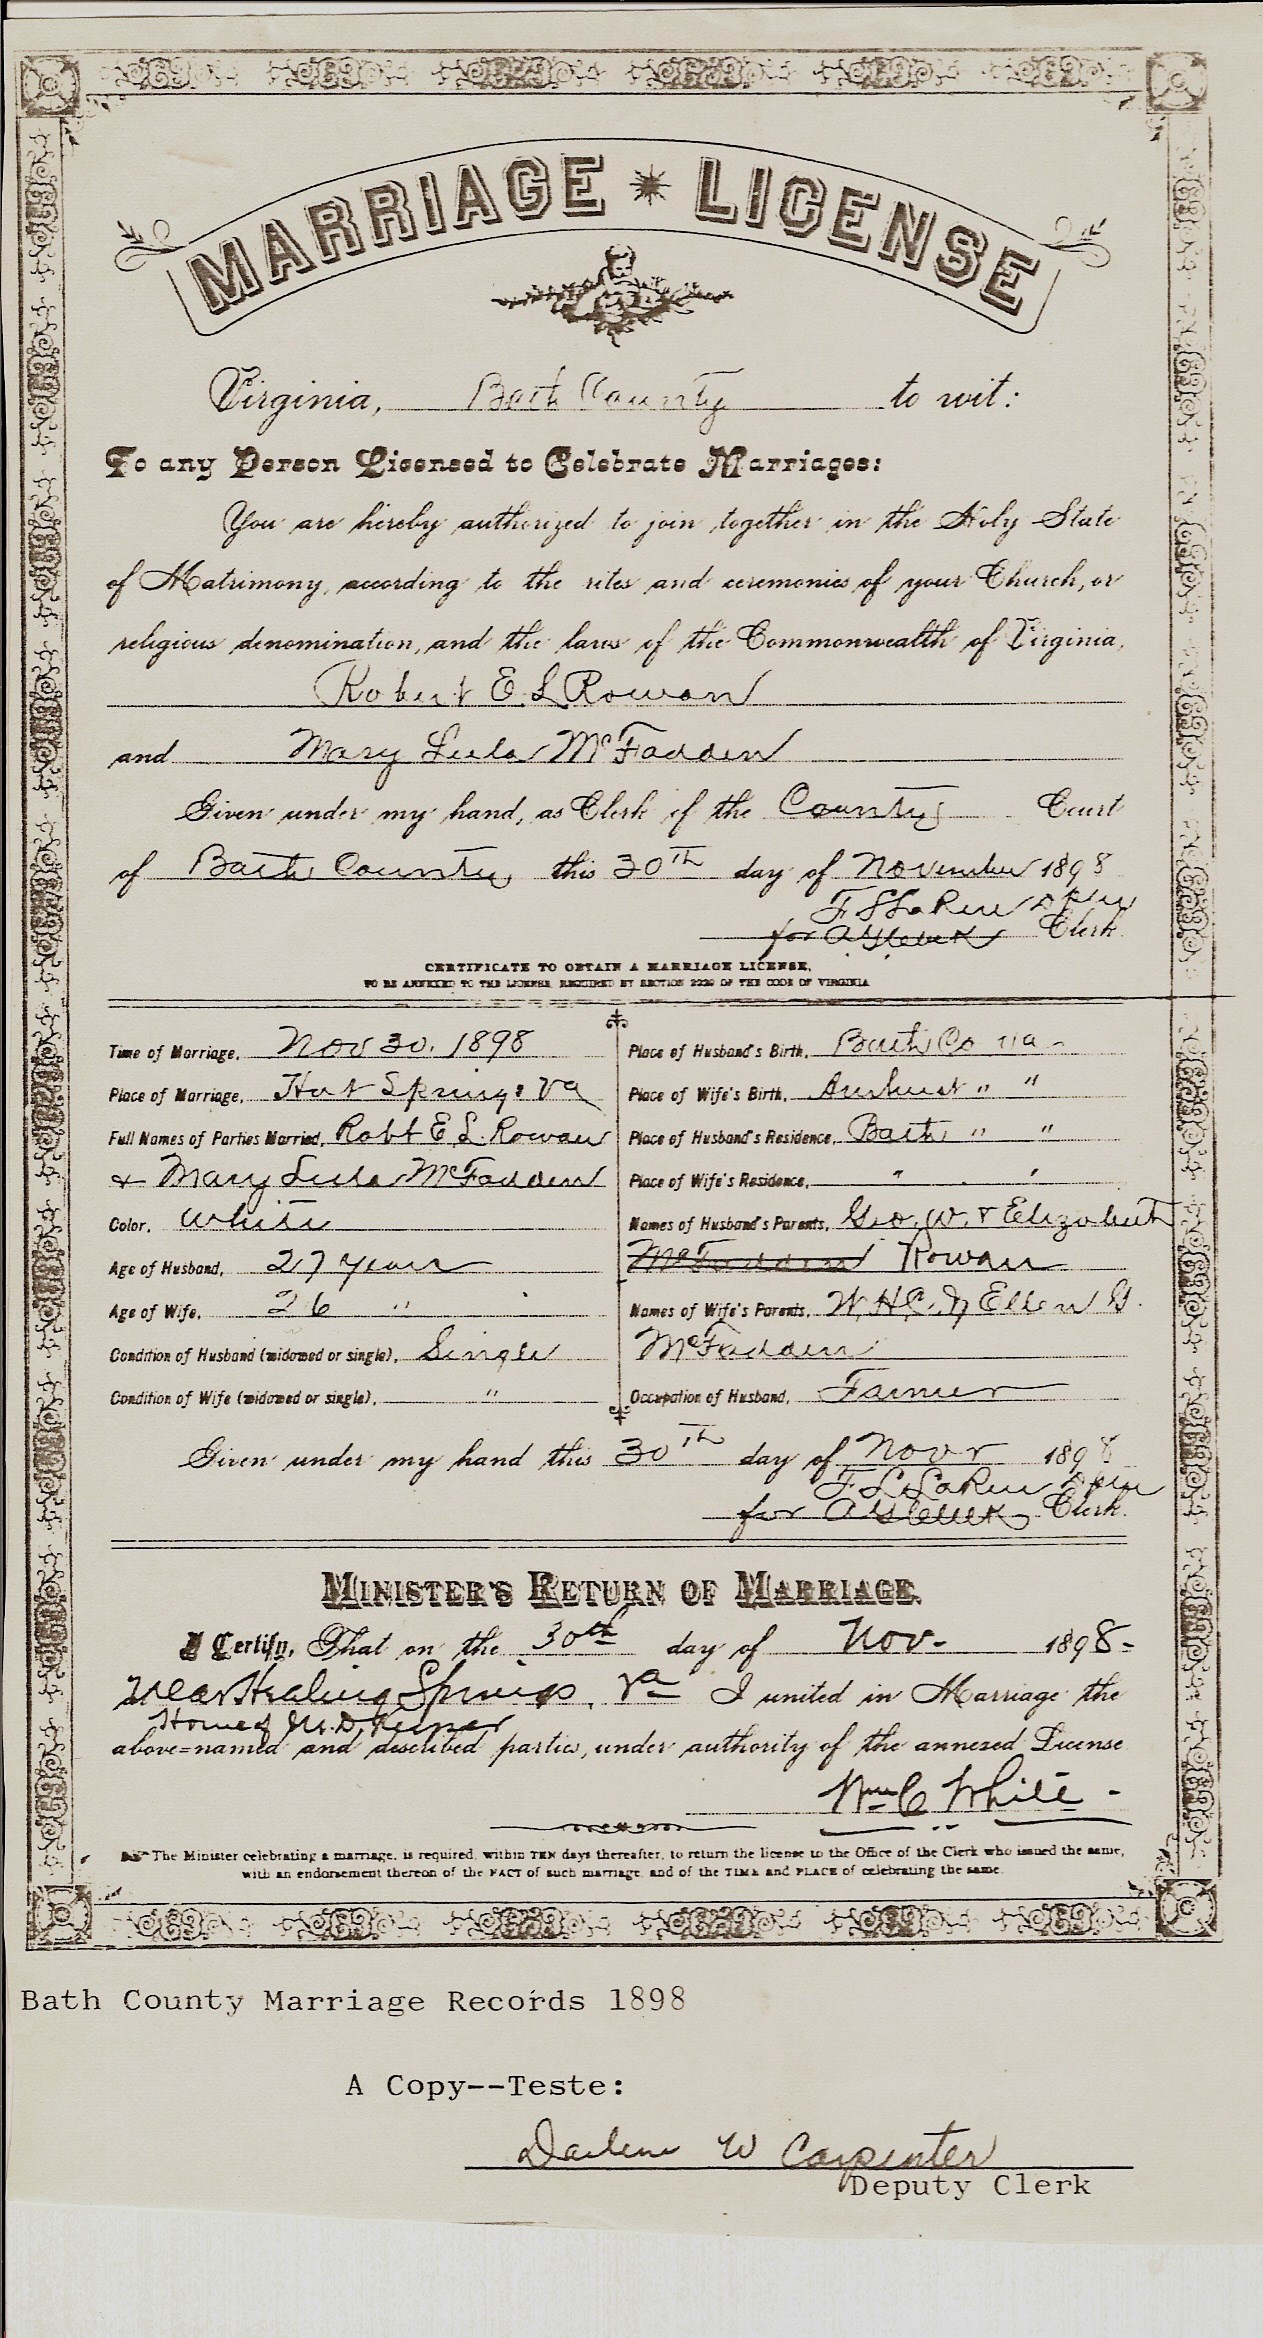 MARRIAGE LICENSE
Virginia, Bath County to wit:
To any Person Licensed to Celebrate Marriages:
You are hereby authorized to join together in the Holy State
of Matrimony, according to the rites and ceremonies of your Church, or
religious denomination, and the laws of the Commonwealth of Virginia,
Robert E. L Rowan
and Mary Lula McFadden
Given under my hand, as Clerk of the County Court
of Bath County this 30th day of November 1898
for Clerk.
CERTIFICATE TO OBTAIN A MARRIAGE LICENSE,
TO BE ANNEXED TO THE LICENSE, REQUIRED BY SECTION 2229 OF THE CODE OF VIRGINIA
Time of Marriage, Nov 30. 1898
Place of Marriage, Hot Springs Va
Full Names of Parties Married, Robt E. L. Rowan
& Mary Lula McFadden
Color, White
Age of Husband, 27 years
Age of Wife, 26 "
Condition of Husband (widowed or single), Single
Condition of Wife (widowed or single), "
Place of Husband's Birth, Bath Co Va
Place of Wife's Birth, Amherst " "
Place of Husband's Residence, Bath " "
Place of Wife's Residence, " "
Names of Husband's Parents, Geo. W. & Elizabeth
McFadden Rowan
Names of Wife's Parents, W. H. Ellen G.
McFadden
Occupation of Husband, Farmer
Given under my hand this 30th day of Novr 1898
for Clerk.
MINISTER'S RETURN OF MARRIAGE.
I Certify, That on the 30th day of Nov. 1898-
near Healing Springs, Va I united in Marriage the
Home of
above=named and described parties, under authority of the annexed License
Wm C White -
The Minister celebrating a marriage, is required, within TEN days thereafter, to return the license to the Office of the Clerk who issued the same,
with an endorsement thereon of the FACT of such marriage, and of the TIME and PLACE of celebrating the same.
Bath County Marriage Records 1898
A Copy--Teste:
Darlene W Carpenter
Deputy Clerk